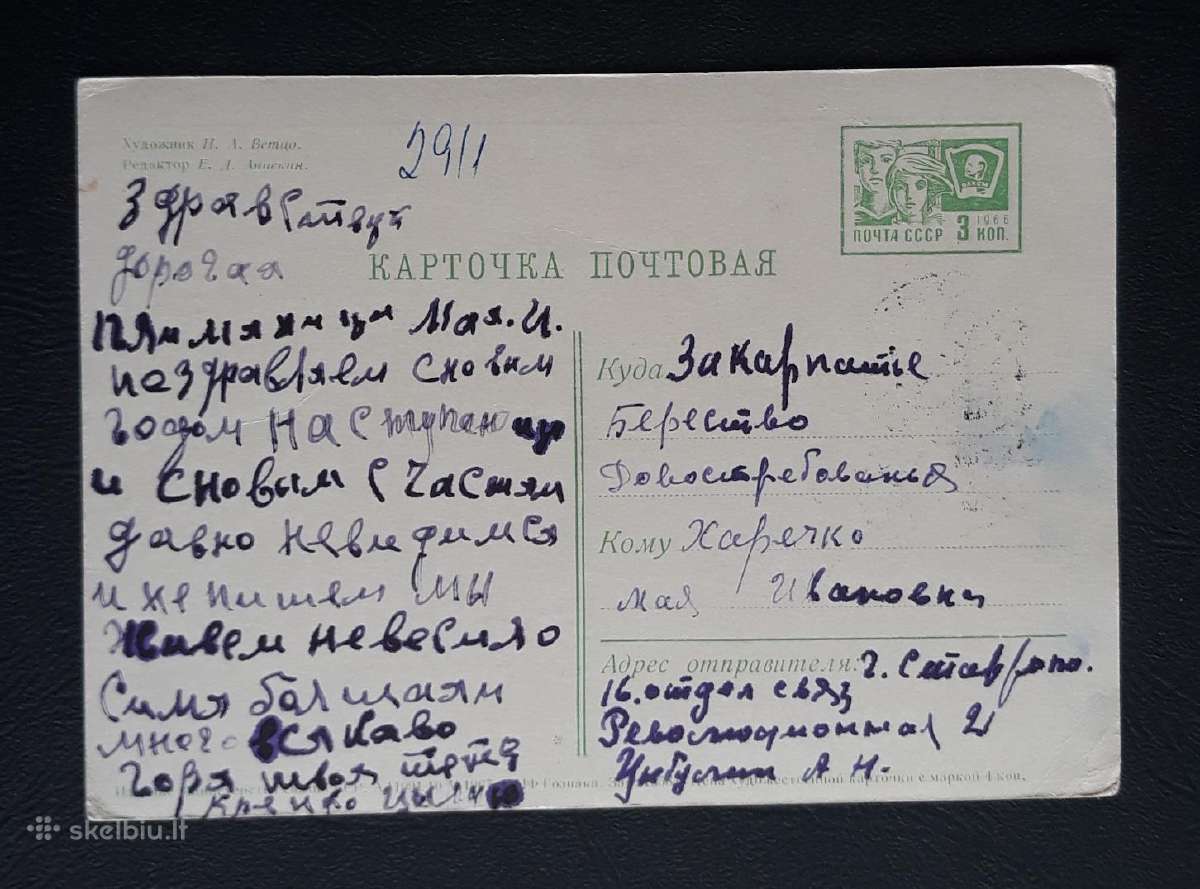 Художник И. А. Ветцо.
Редактор Е. Д. Аникин.
29/1
Здравствуй
дорогая
плимяница Мая. И.
поздравляем сновым
годом наступаю
и сновым счастям
давно невидимся
и не пишем мы
живем невесило
Симя болщаяи
много всякаво
горя твоя тётя
крепко цылую
КАРТОЧКА ПОЧТОВАЯ
ПОЧТА СССР 3 КОП.
1966
Куда Закарпатье
Берество
Довостребованья
Кому Харечко
мая Ивановни
Адрес отправителя: г. Ставропо.
16. отдел связ
Революционная 21
А Н.
художественной карточки с маркой 4 коп.
skelbiu.lt